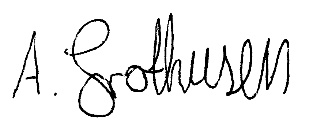 A. Grothusen